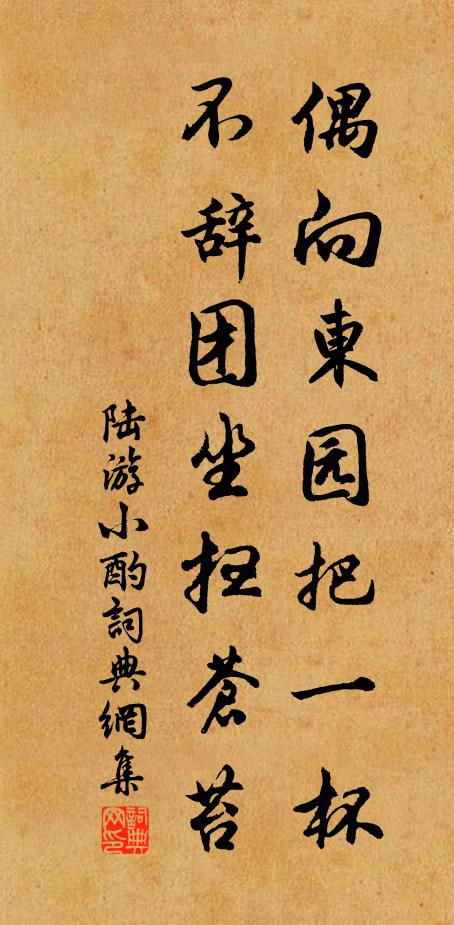 偶向東园把一杯
不辞团坐扫苍苔
陆游小酌詞典網集
詞典网印